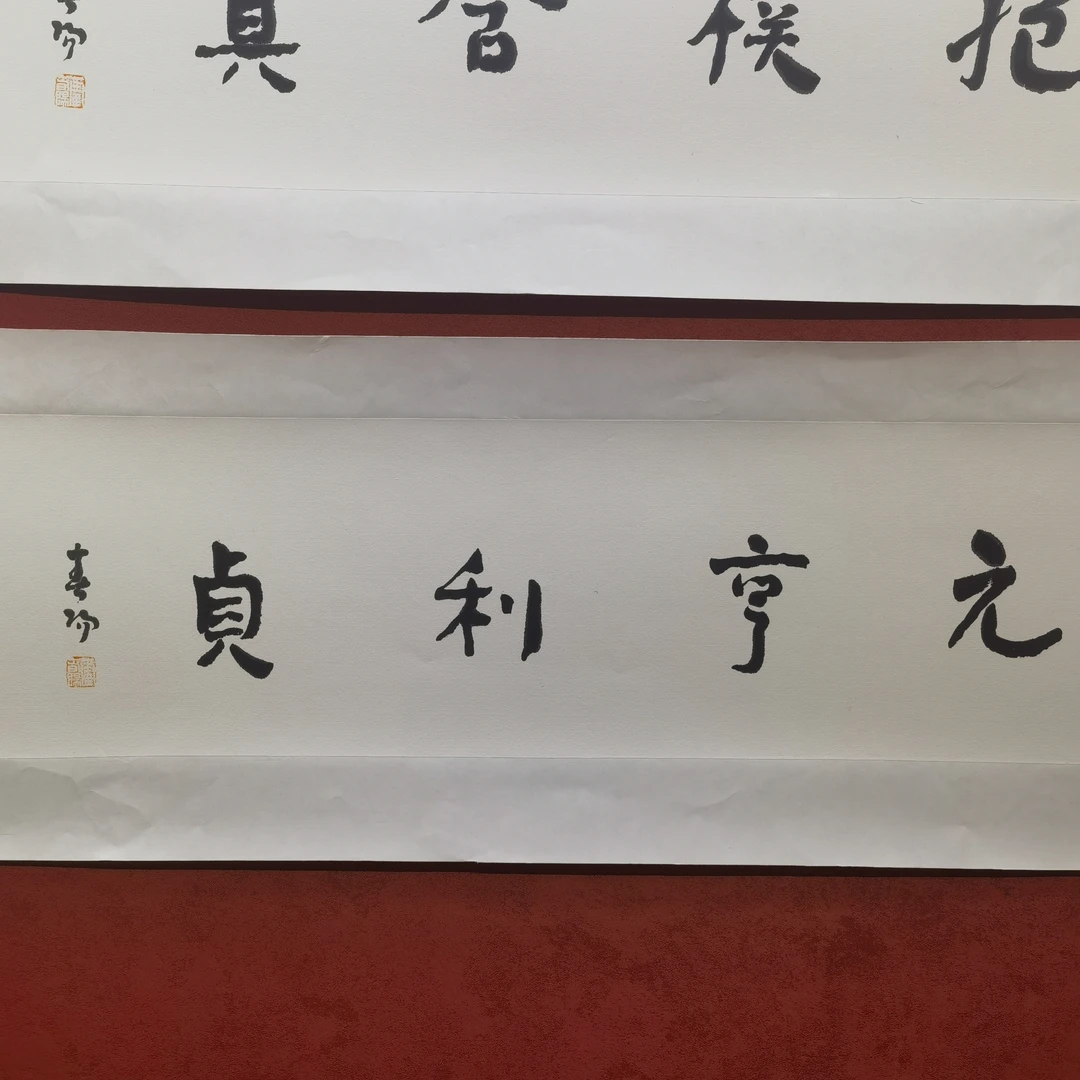 抱樸含真
元亨利貞
春陽